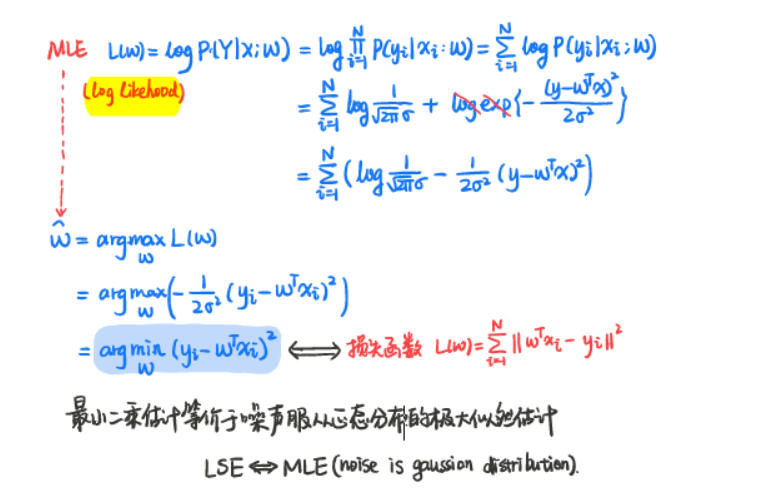 MLE L(w) = log P(Y|X;w) = log ∏_{i=1}^{N} P(y_i|x_i;w) = ∑_{i=1}^{N} log P(y_i|x_i;w)
(log likehood) = ∑_{i=1}^{N} log \frac{1}{\sqrt{2π}σ} + log exp{-\frac{(y-w^T x)^2}{2σ^2}}
= ∑_{i=1}^{N} (log \frac{1}{\sqrt{2π}σ} - \frac{1}{2σ^2} (y-w^T x)^2)
ŵ = argmax_w L(w)
= argmax_w (-\frac{1}{2σ^2} (y_i - w^T x_i)^2)
= argmin_w (y_i - w^T x_i)^2 ⟺ 损失函数 L(w) = ∑_{i=1}^{N} ||w^T x_i - y_i||^2
最小二乘估计等价于噪声服从正态分布的极大似然估计
LSE ⇔ MLE (noise is gaussion distribution).